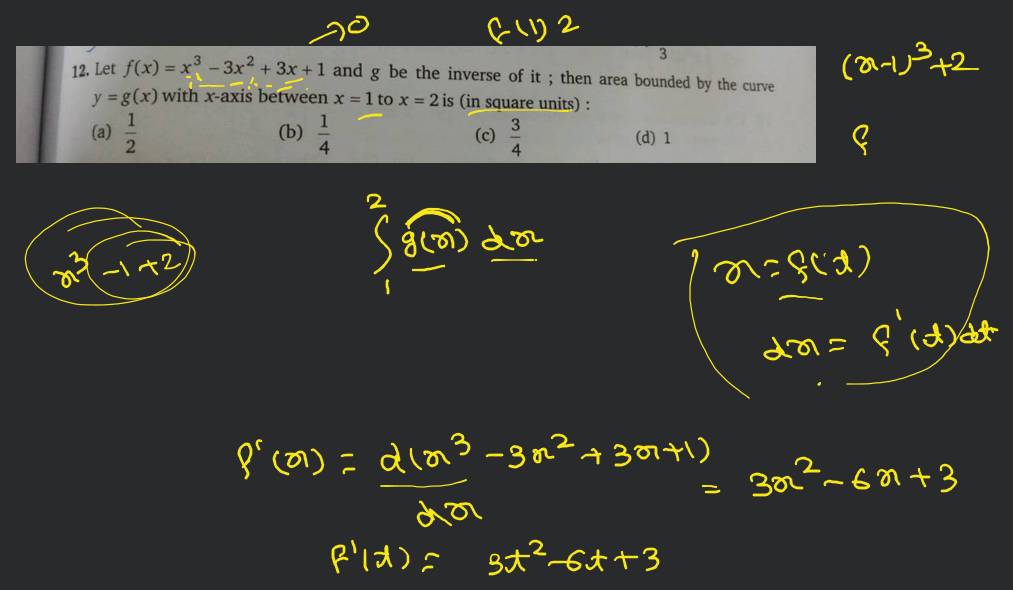 →0
f(1) 2
3
12. Let f(x) = x³ – 3x² + 3x + 1 and g be the inverse of it ; then area bounded by the curve
y = g(x) with x-axis between x = 1 to x = 2 is (in square units) :
(a) 1/2 (b) 1/4 (c) 3/4 (d) 1
(x-1)³+2
f
x³ -1+2
∫₁² g(x) dx
x = f(t)
dx = f'(t)dt
f'(x) = d(x³ - 3x² + 3x+1)/dx = 3x² - 6x + 3
f'(t) = 3t² - 6t + 3